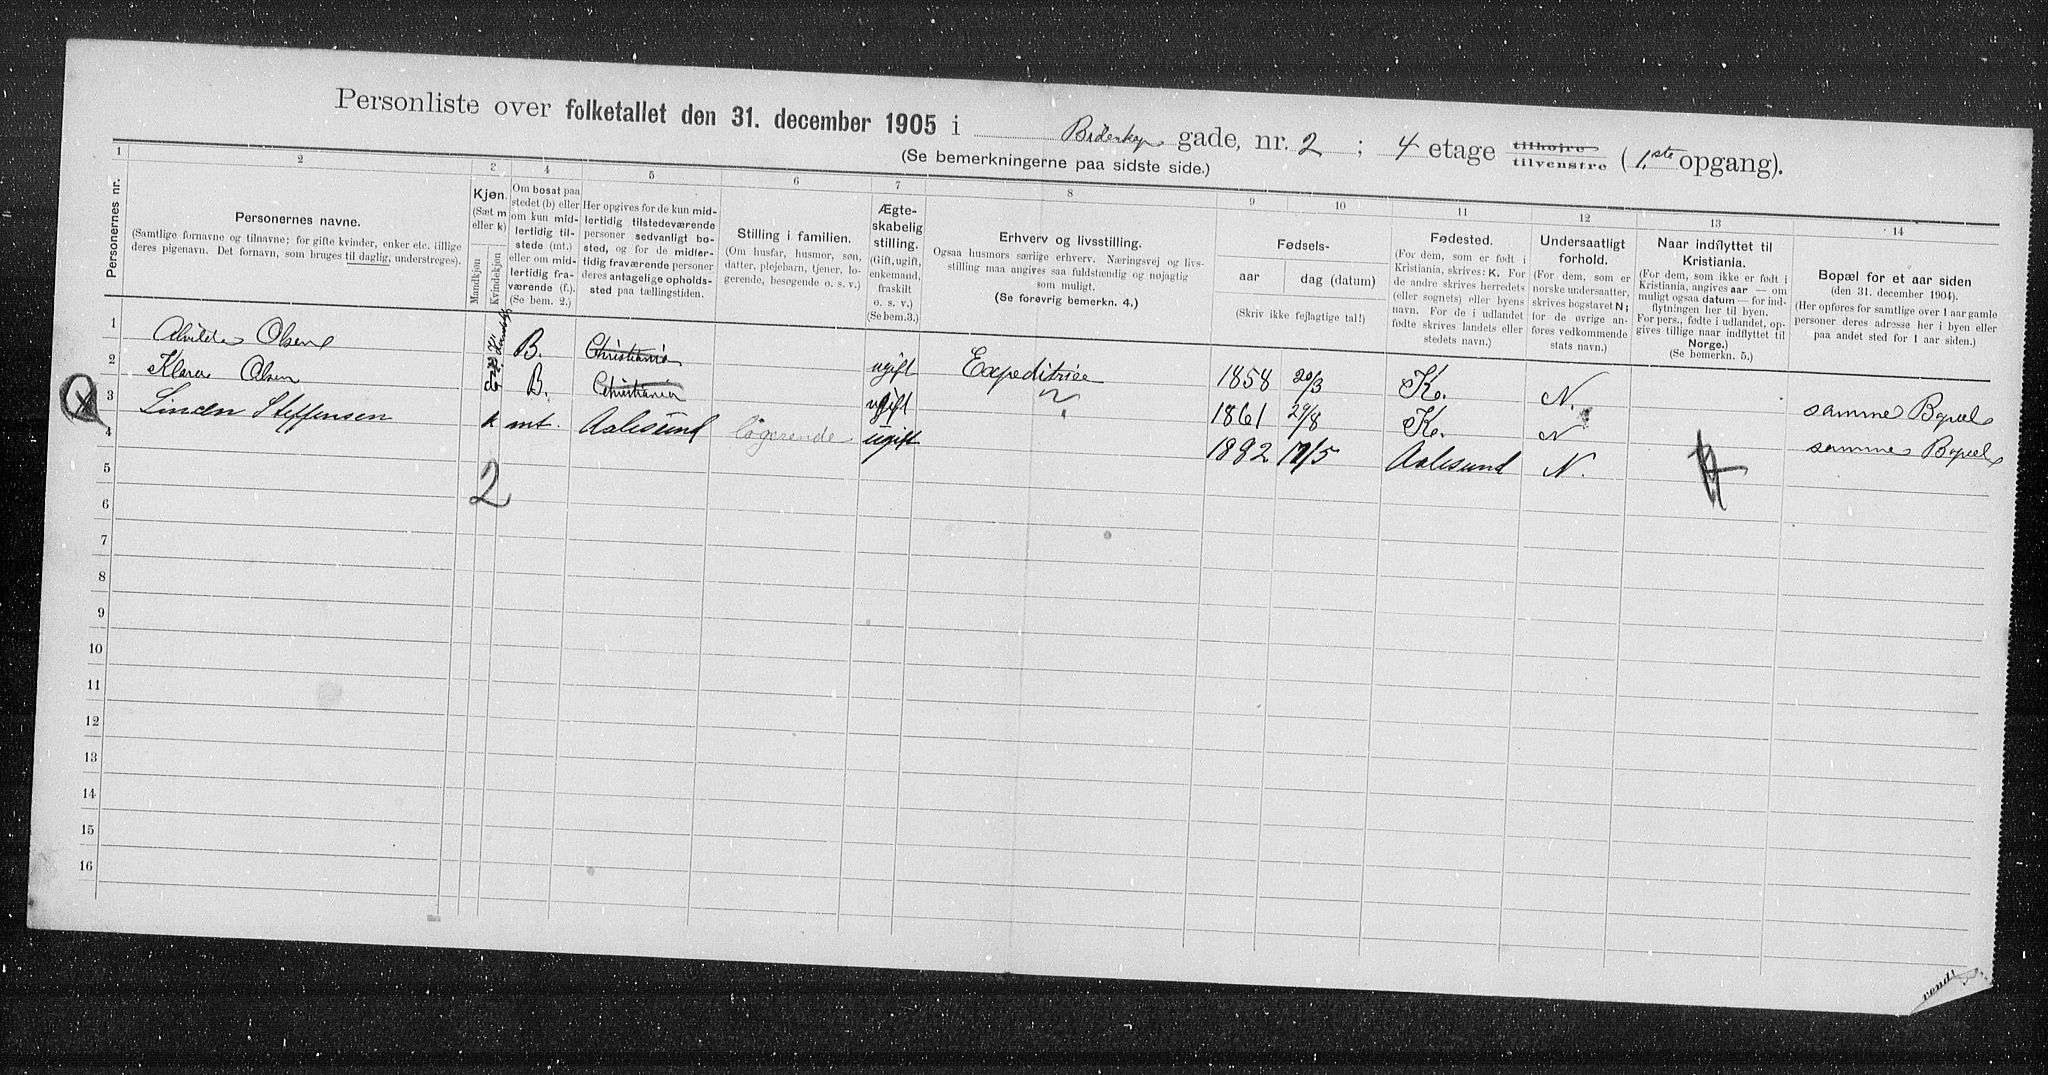 Personliste over folketallet den 31. december 1905 i Bidenkap gade, nr. 2 ; 4 etage tilhøire tilvenstre (1.ste opgang).
(Se bemerkningerne paa sidste side.)
1 2 3 4 5 6 7 8 9 10 11 12 13 14
Personernes nr.
Personernes navne.
(Samtlige fornavne og tilnavne; for gifte kvinder, enker etc. tillige
deres pigenavn. Det fornavn, som bruges til daglig, understreges).
Kjøn.
(Sæt m
eller k)
Mandkjøn
Kvindekjøn
Om bosat paa
stedet (b) eller
om kun mid-
lertidig til-
stede (mt.)
eller om mid-
lertidig fra-
værende (f.).
(Se bem. 2.)
Her opgives for de kun mid-
lertidig tilstedeværende
personer sedvanligt bo-
sted, og for de midler-
tidig fraværende personer
deres antagelige opholds-
sted paa tællingstiden.
Stilling i familien.
(Om husfar, husmor, søn,
datter, plejebarn, tjener, lo-
gerende, besøgende o. s. v.)
Ægte-
skabelig
stilling.
(Gift, ugift,
enkemand,
fraskilt
o. s. v.)
(Se bem.3.)
Erhverv og livsstilling.
Ogsaa husmors særlige erhverv. Næringsvej og livs-
stilling maa angives saa fuldstændig og nøjagtig
som muligt.
(Se forøvrig bemerkn. 4.)
Fødsels-
aar dag (datum)
(Skriv ikke fejlagtige tal!)
Fødested.
(For dem, som er født i
Kristiania, skrives: K. For
de andre skrives herredets
(eller sognets) eller byens
navn. For de i udlandet
fødte skrives landets eller
stedets navn.)
Undersaatligt
forhold.
(For dem, som er
norske undersaatter,
skrives bogstavet N;
for de øvrige an-
føres vedkommende
stats navn.)
Naar indflyttet til
Kristiania.
(For dem, som ikke er født i
Kristiania, angives aar — om
muligt ogsaa datum — for ind-
flytningen her til byen.
For pers., fødte i udlandet, op-
gives tillige naar indflyttet til
Norge.)
(Se bemerkn. 5.)
Bopæl for et aar siden
(den 31. december 1904).
(Her opføres for samtlige over 1 aar gamle
personer deres adresse her i byen eller
paa andet sted for 1 aar siden.)
1 Alvilda Olsen B. Christiania ugift Expeditrice 1858 20/3 K. N. samme Bopæl
2 Klara Olsen B. Christiania ugift " 1861 29/8 K. N samme Bopæl
3 Linden Steffensen k mt. Aalesund logerende ugift 1892 17/5 Aalesund N.
4
5
2
6
7
8
9
10
11
12
13
14
15
16